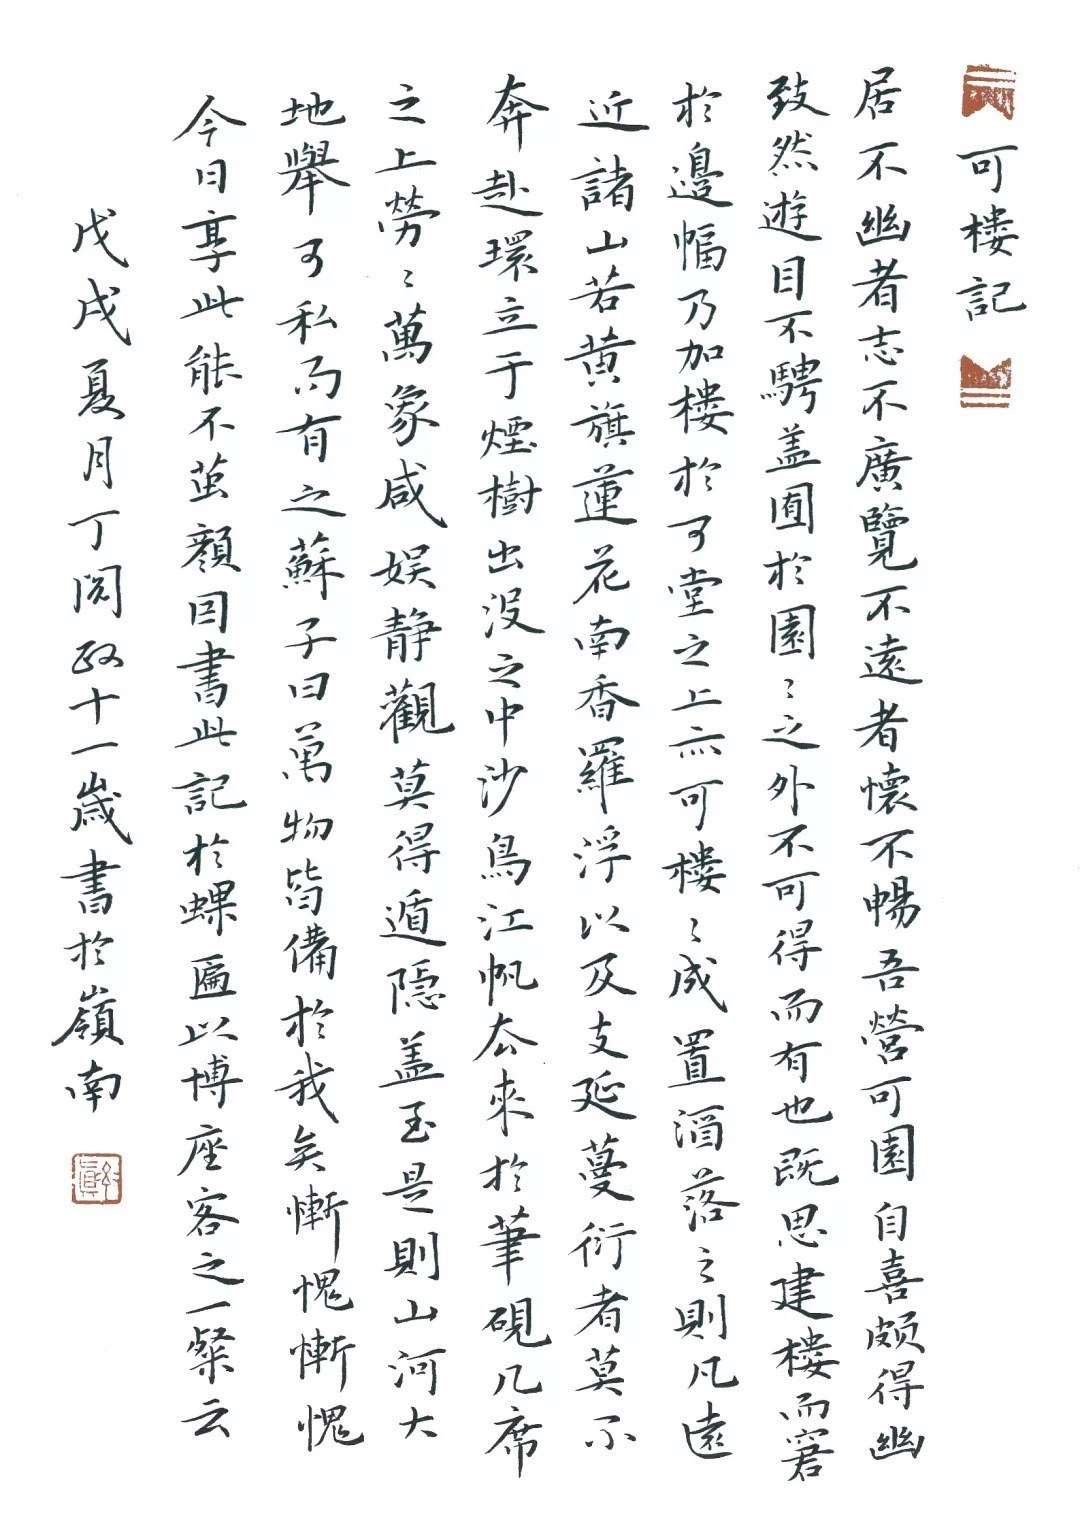 可楼記
居不幽者志不廣覽不遠者懷不暢吾營可園自喜頗得幽
致然遊目不騁盖囿於園〻之外不可得而有也既思建楼而窘
於邊幅乃加楼於可堂之上亦可楼〻成置酒落之則凡遠
近諸山若黄旗蓮花南香羅浮以及支延蔓衍者莫不
奔赴環立于煙樹出没之中沙鳥江帆去來於筆硯几席
之上勞〻萬象咸娱静觀莫得遁隱盖至是則山河大
地舉可私而有之蘇子曰萬物皆備於我矣慚愧慚愧
今日享此能不茧顔因書此記於螺匾以博座客之一粲云
戊戌夏月丁閲政十一歲書於嶺南